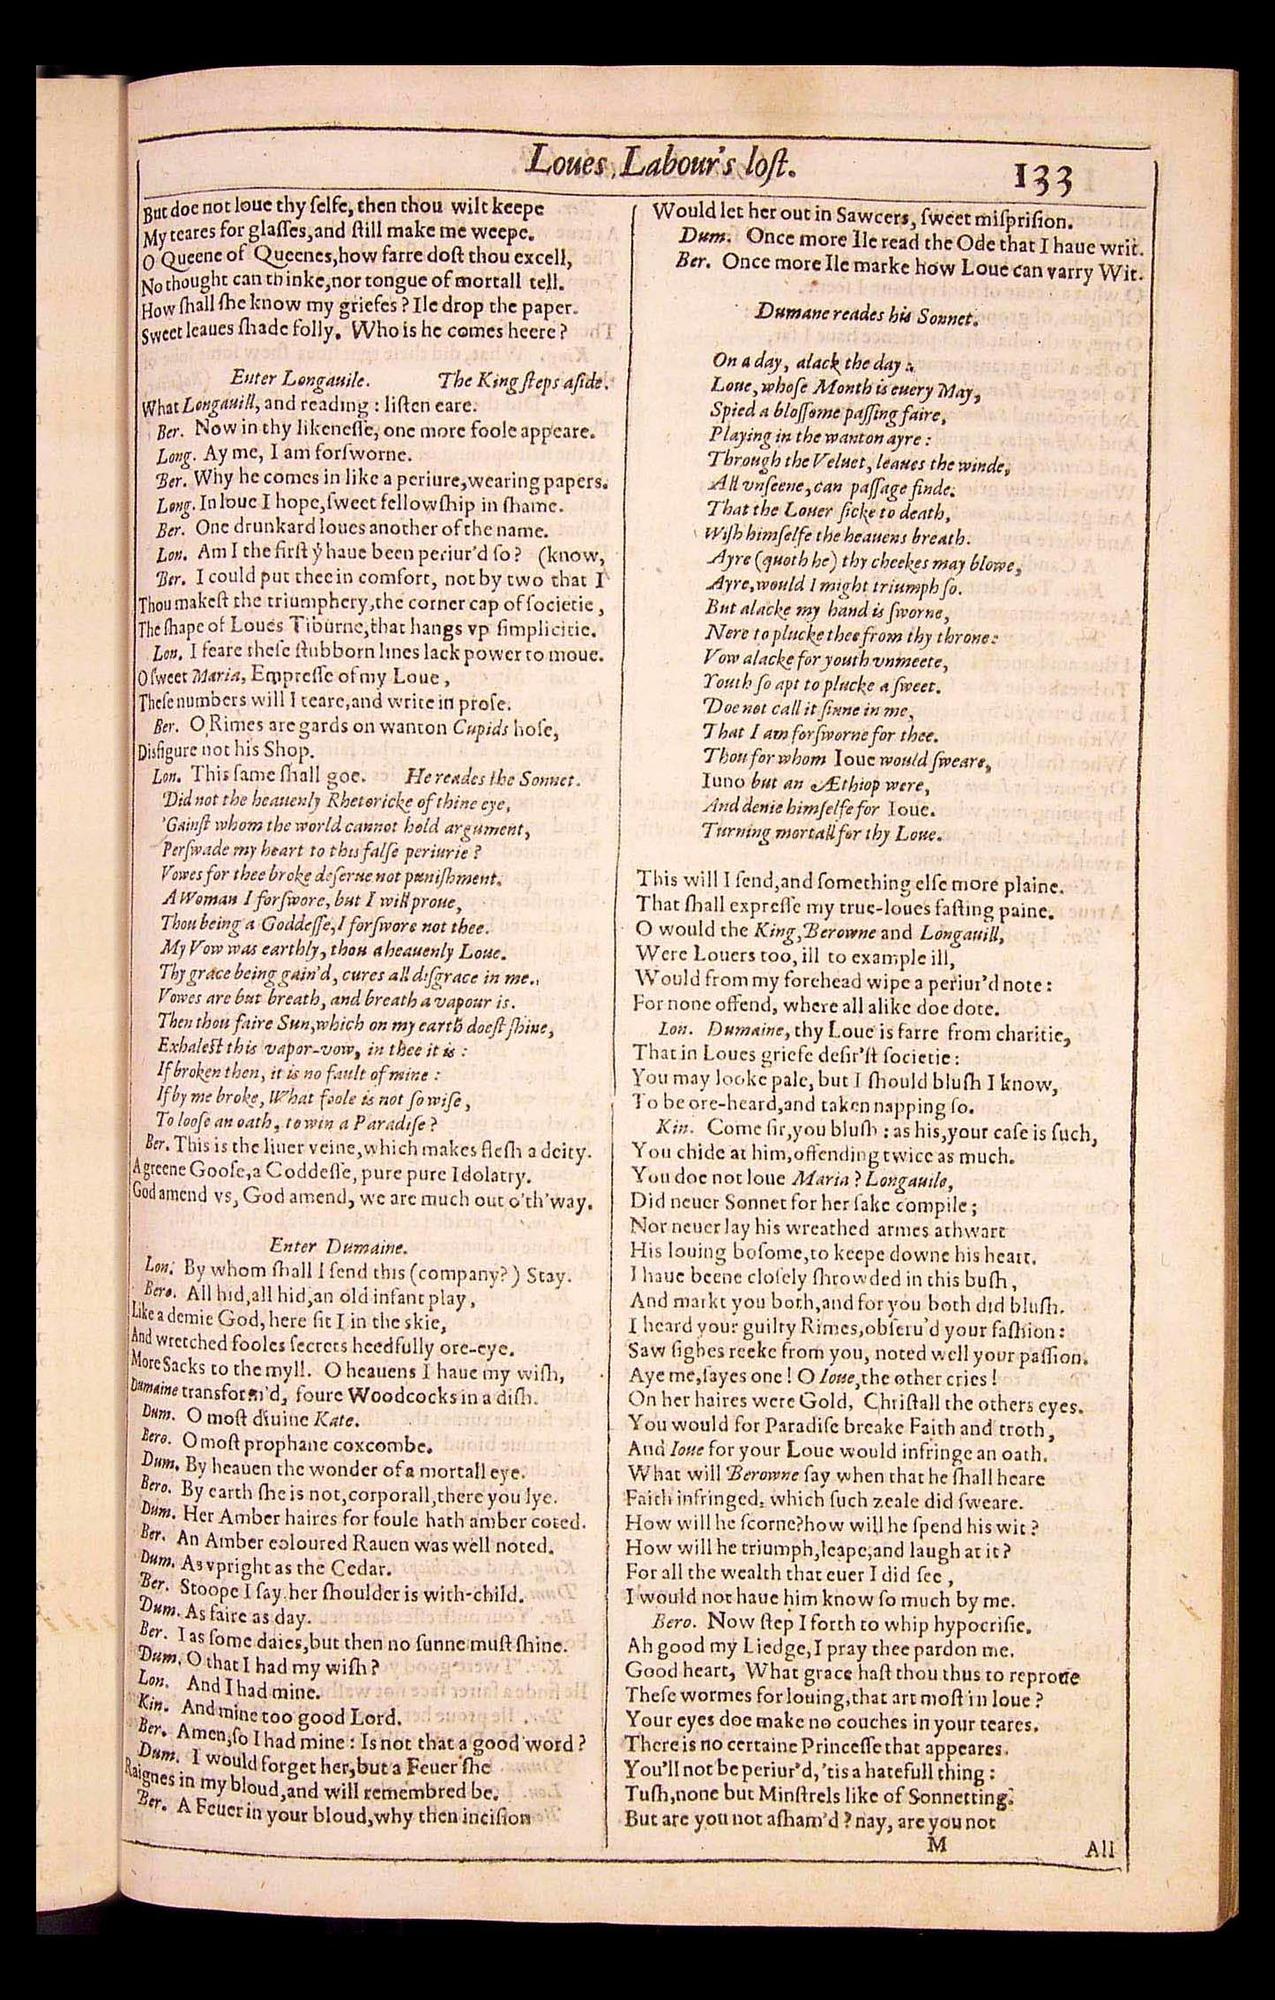 Loues Labour's lost.
133
But doe not loue thy ſelfe, then thou wilt keepe
My teares for glaſſes, and ſtill make me weepe.
O Queene of Queenes, how farre doſt thou excell,
No thought can thinke, nor tongue of mortall tell.
How ſhall ſhe know my griefes? Ile drop the paper.
Sweet leaues ſhade folly. Who is he comes heere?
Enter Longauile. The King ſteps aſide.
What Longauill, and reading: liſten eare.
Ber. Now in thy likeneſſe, one more foole appeare.
Long. Ay me, I am forſworne.
Ber. Why he comes in like a periure, wearing papers.
Long. In loue I hope, ſweet fellowſhip in ſhame.
Ber. One drunkard loues another of the name.
Lon. Am I the firſt ẏ haue been periur'd ſo? (know,
Ber. I could put thee in comfort, not by two that I
Thou makeſt the triumphery, the corner cap of ſocietie,
The ſhape of Loues Tiburne, that hangs vp ſimplicitie.
Lon. I feare theſe ſtubborn lines lack power to moue.
O ſweet Maria, Empreſſe of my Loue,
Theſe numbers will I teare, and write in proſe.
Ber. O Rimes are gards on wanton Cupids hoſe,
Disfigure not his Shop.
Lon. This ſame ſhall goe. He reades the Sonnet.
Did not the heauenly Rhetoricke of thine eye,
'Gainſt whom the world cannot hold argument,
Perſwade my heart to this falſe periurie?
Vowes for thee broke deſerue not puniſhment.
A Woman I forſwore, but I will proue,
Thou being a Goddeſſe, I forſwore not thee.
My Vow was earthly, thou a heauenly Loue.
Thy grace being gain'd, cures all diſgrace in me.
Vowes are but breath, and breath a vapour is.
Then thou faire Sun, which on my earth doeſt ſhine,
Exhaleſt this vapor-vow, in thee it is:
If broken then, it is no fault of mine:
If by me broke, What foole is not ſo wiſe,
To looſe an oath, to win a Paradiſe?
Ber. This is the liuer veine, which makes fleſh a deity.
A greene Gooſe, a Coddeſſe, pure pure Idolatry.
God amend vs, God amend, we are much out o'th'way.
Enter Dumaine.
Lon. By whom ſhall I ſend this (company?) Stay.
Bero. All hid, all hid, an old infant play,
Like a demie God, here ſit I in the skie,
And wretched fooles ſecrets heedfully ore-eye.
More Sacks to the myll. O heauens I haue my wiſh,
Dumaine transform'd, foure Woodcocks in a diſh.
Dum. O moſt diuine Kate.
Bero. O moſt prophane coxcombe.
Dum. By heauen the wonder of a mortall eye.
Bero. By earth ſhe is not, corporall, there you lye.
Dum. Her Amber haires for foule hath amber coted.
Ber. An Amber coloured Rauen was well noted.
Dum. As vpright as the Cedar.
Ber. Stoope I ſay her ſhoulder is with-child.
Dum. As faire as day.
Ber. I as ſome daies, but then no ſunne muſt ſhine.
Dum. O that I had my wiſh?
Lon. And I had mine.
Kin. And mine too good Lord.
Ber. Amen, ſo I had mine: Is not that a good word?
Dum. I would forget her, but a Feuer ſhe
Raignes in my bloud, and will remembred be.
Ber. A Feuer in your bloud, why then inciſion
Would let her out in Sawcers, ſweet miſpriſion.
Dum. Once more Ile read the Ode that I haue writ.
Ber. Once more Ile marke how Loue can varry Wit.
Dumane reades his Sonnet.
On a day, alack the day:
Loue, whoſe Month is euery May,
Spied a bloſſome paſſing faire,
Playing in the wanton ayre:
Through the Veluet, leaues the winde,
All vnſeene, can paſſage finde.
That the Louer ſicke to death,
Wiſh himſelfe the heauens breath.
Ayre (quoth he) thy cheekes may blowe,
Ayre, would I might triumph ſo.
But alacke my hand is ſworne,
Nere to plucke thee from thy throne:
Vow alacke for youth vnmeete,
Youth ſo apt to plucke a ſweet.
Doe not call it ſinne in me,
That I am forſworne for thee.
Thou for whom Ioue would ſweare,
Iuno but an Æthiop were,
And denie himſelfe for Ioue.
Turning mortall for thy Loue.
This will I ſend, and ſomething elſe more plaine.
That ſhall expreſſe my true-loues faſting paine.
O would the King, Berowne and Longauill,
Were Louers too, ill to example ill,
Would from my forehead wipe a periur'd note:
For none offend, where all alike doe dote.
Lon. Dumaine, thy Loue is farre from charitie,
That in Loues griefe deſir'ſt ſocietie:
You may looke pale, but I ſhould bluſh I know,
To be ore-heard, and taken napping ſo.
Kin. Come ſir, you bluſh: as his, your caſe is ſuch,
You chide at him, offending twice as much.
You doe not loue Maria? Longauile,
Did neuer Sonnet for her ſake compile;
Nor neuer lay his wreathed armes athwart
His louing boſome, to keepe downe his heart.
I haue beene cloſely ſhrowded in this buſh,
And markt you both, and for you both did bluſh.
I heard your guilty Rimes, obſeru'd your faſhion:
Saw ſighes reeke from you, noted well your paſſion.
Aye me, ſayes one! O Ioue, the other cries!
On her haires were Gold, Chriſtall the others eyes.
You would for Paradiſe breake Faith and troth,
And Ioue for your Loue would infringe an oath.
What will Berowne ſay when that he ſhall heare
Faith infringed, which ſuch zeale did ſweare.
How will he ſcorne? how will he ſpend his wit?
How will he triumph, leape, and laugh at it?
For all the wealth that euer I did ſee,
I would not haue him know ſo much by me.
Bero. Now ſtep I forth to whip hypocriſie.
Ah good my Liedge, I pray thee pardon me.
Good heart, What grace haſt thou thus to reproue
Theſe wormes for louing, that art moſt in loue?
Your eyes doe make no couches in your teares.
There is no certaine Princeſſe that appeares.
You'll not be periur'd, 'tis a hatefull thing:
Tuſh, none but Minſtrels like of Sonnetting.
But are you not aſham'd? nay, are you not
M
All